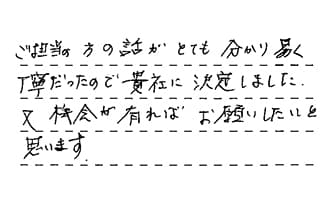 ご担当の方の話がとても分かり易く
丁寧だったので貴社に決定しました.
又機会が有ればお願いしたいと
思います.